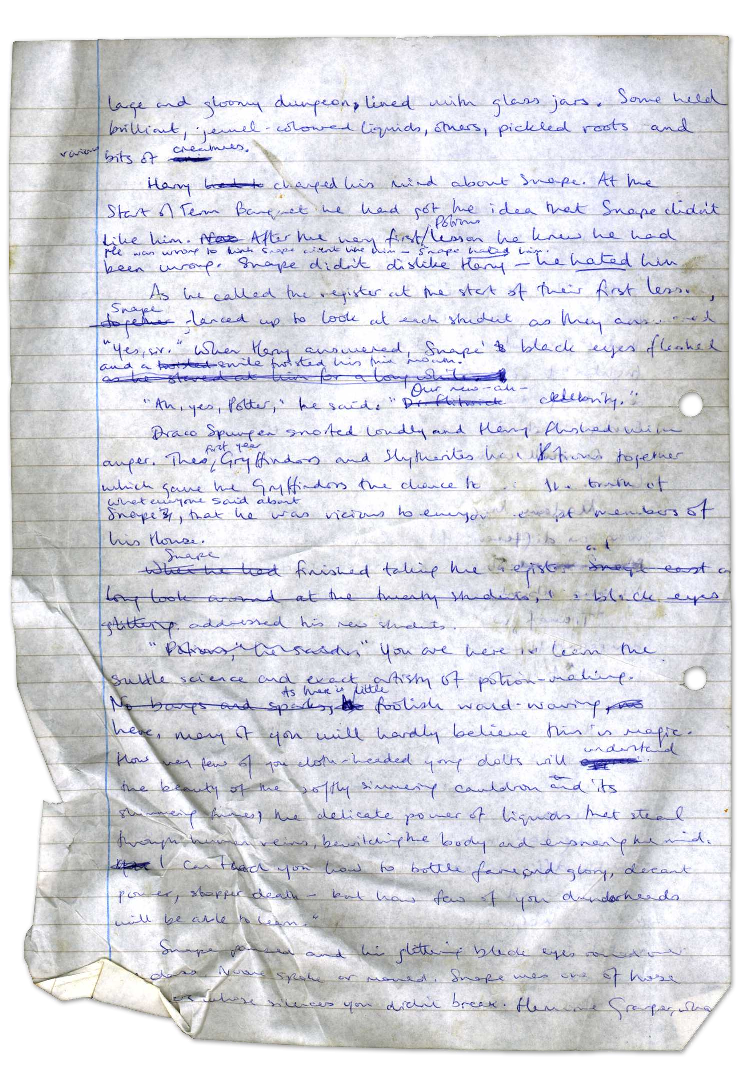 large and gloomy dungeon, lined with glass jars. Some held
brilliant, jewel-coloured liquids, others, pickled roots and
various bits of creatures.
Harry had to changed his mind about Snape. At the
Start of Term Banquet he had got the idea that Snape didn't
Potions
like him. Now After the very first lesson he knew he had
He was wrong to think Snape didn't like him - Snape hated him.
been wrong. Snape didn't dislike Harry – he hated him
As he called the register at the start of their first lesson,
Snape
together glanced up to look at each student as they answered
"Yes, sir." When Harry answered Snape's black eyes flashed
and a twisted smile twisted his thin mouth.
as he stared at him for a long while
Our new-
"Ah, yes, Potter," he said. " celebrity."
Draco Spungen snorted loudly and Harry flushed with
first year
anger. The Gryffindors and Slytherins had Potions together
which gave the Gryffindors the chance to the truth of
what everyone said about
Snape, that he was vicious to everyone except members of
his House.
Snape
When he had finished taking the register and Snape cast a
long look around at the twenty students, his black eyes
glittering. addressed his new students.
"Potions," "You are here to learn the
subtle science and exact artistry of potion-making.
As there is little
No bangs and sparks, foolish wand-waving, no
here, many of you will hardly believe this is magic.
understand
How very few of you cloth-headed young dolts will
the beauty of the softly simmering cauldron and its
shimmering fumes, the delicate power of liquids that steal
through human veins, bewitching the body and ensnaring the mind.
I can teach you how to bottle fame and glory, decant
power, stopper death – but how few of you dunderheads
will be able to learn."
Snape paused and his glittering black eyes
class. None spoke or moved. Snape was one of those
whose silences you didn't break. Hermione Granger, who